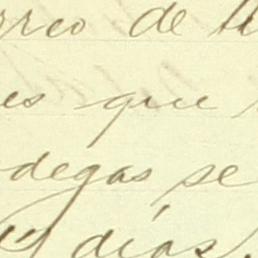 rreo de
es que
degas se
y días